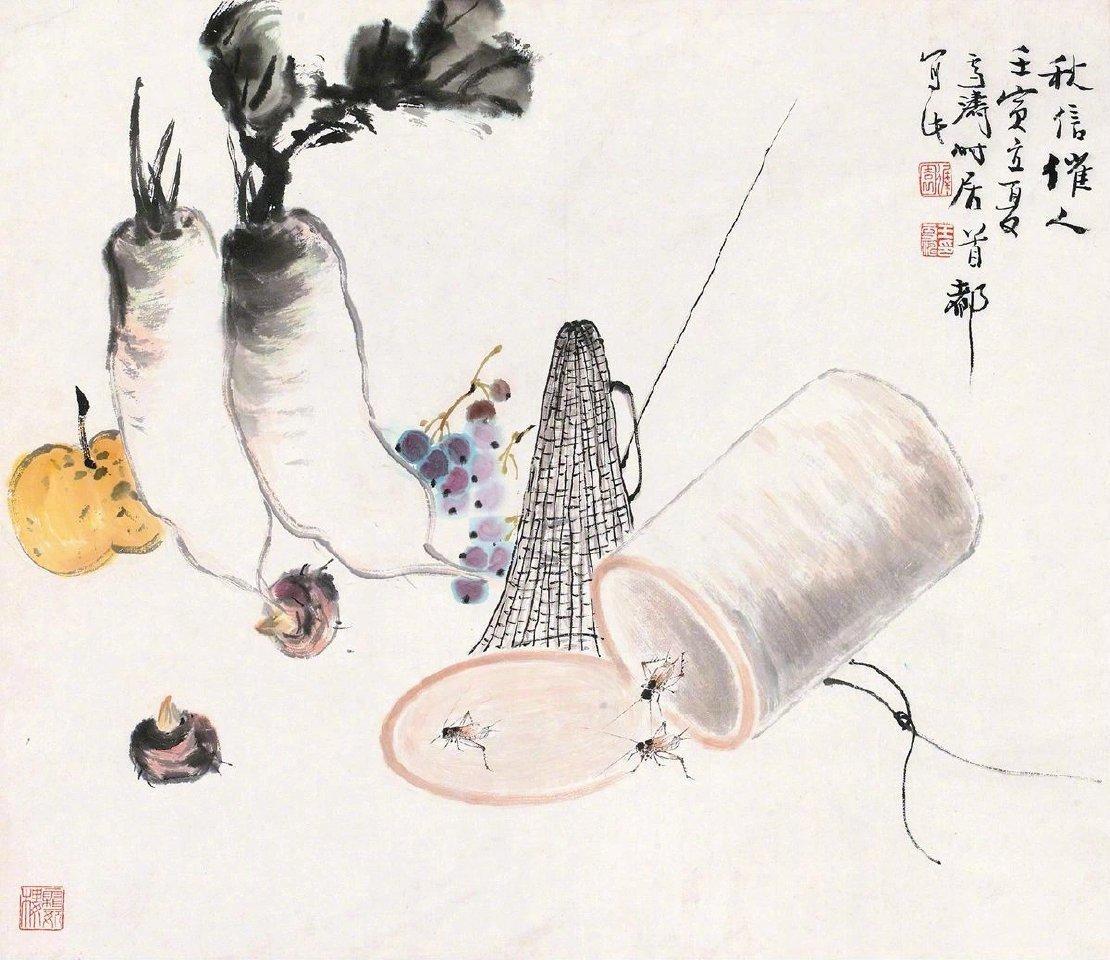 秋信催人
壬寅立夏
雪濤时居首都
写此